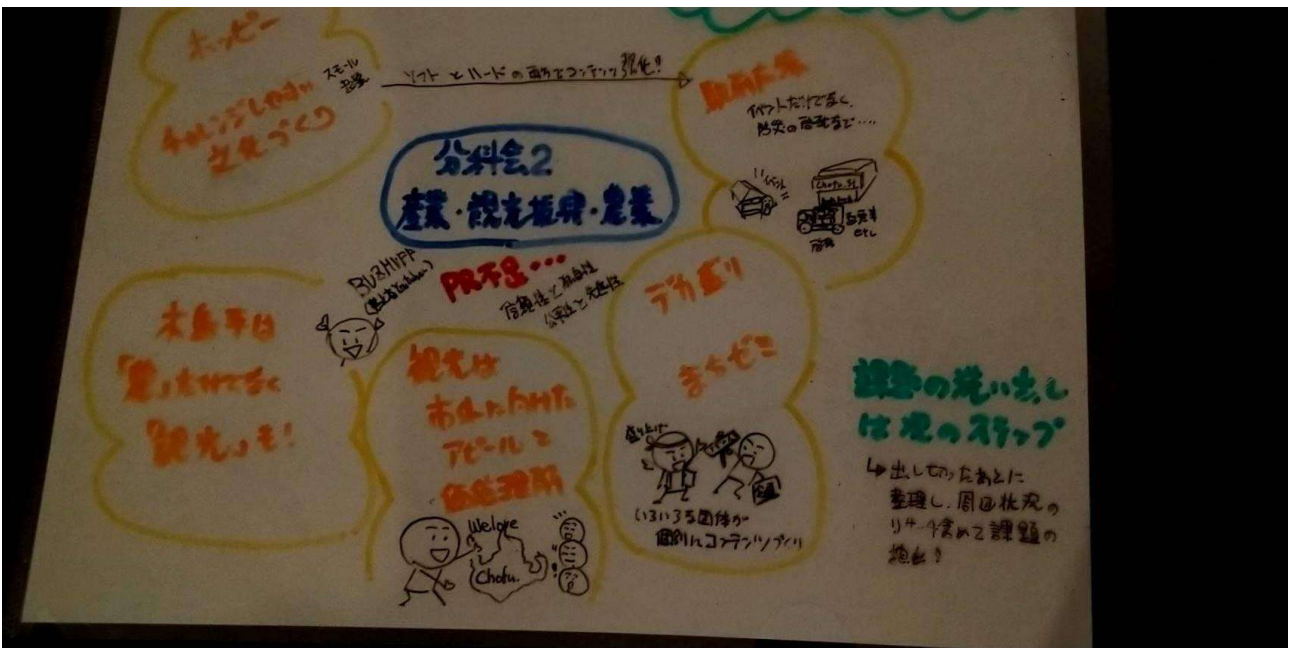 ホッピー
チャレンジしやすい
土気づくり
スモール
起業
ソフトとハードの両方でコンテンツ強化!
イベントだけでなく、
防災の啓発まで....
イベント
Chofu.St
etc
分科会2
産業・観光振興・農業
PR不足…
信頼性と独自性
公平性と先進性
木島平は
「農」だけでなく
「観光」も!
観光は
市外に向けた
アピールと
価値理解
Welove
Chofu.
デカ盛り
まちゼミ
盛り上げ
いろいろな団体が
個別にコンテンツづくり
課題の洗い出し
は次のステップ
↳出し切ったあとに
整理し、周囲状況の
リサーチ含めて課題の
抽出!